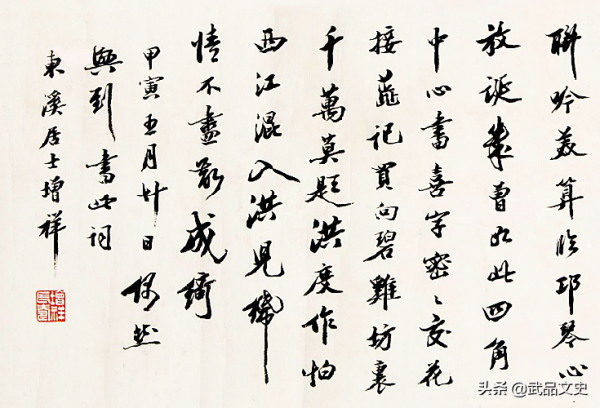 聯吟羨算臨邛琴心
放誕幾曾如此四角
中心書喜字密〻交花
接蕋記買向碧雞坊裏
千萬莫題洪度作怕
西江混入洪見
情不盡成綺
甲寅五月廿日偶然
興到書此詞
東溪居士增祥
头条 @武品文史